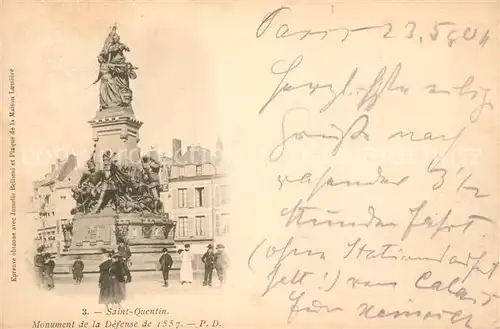 Paris 23.5.04
Herzlichste eilige
Grüße nach
rasender 3½
Stunden Fahrt
(ohne Stationsauf
halt!) von Calais
zum
Epreuve obtenue avec Jumelle Bellieni et Plaque de la Maison Lumière
3. — Saint-Quentin.
Monument de la Défense de 1557. — P. D.